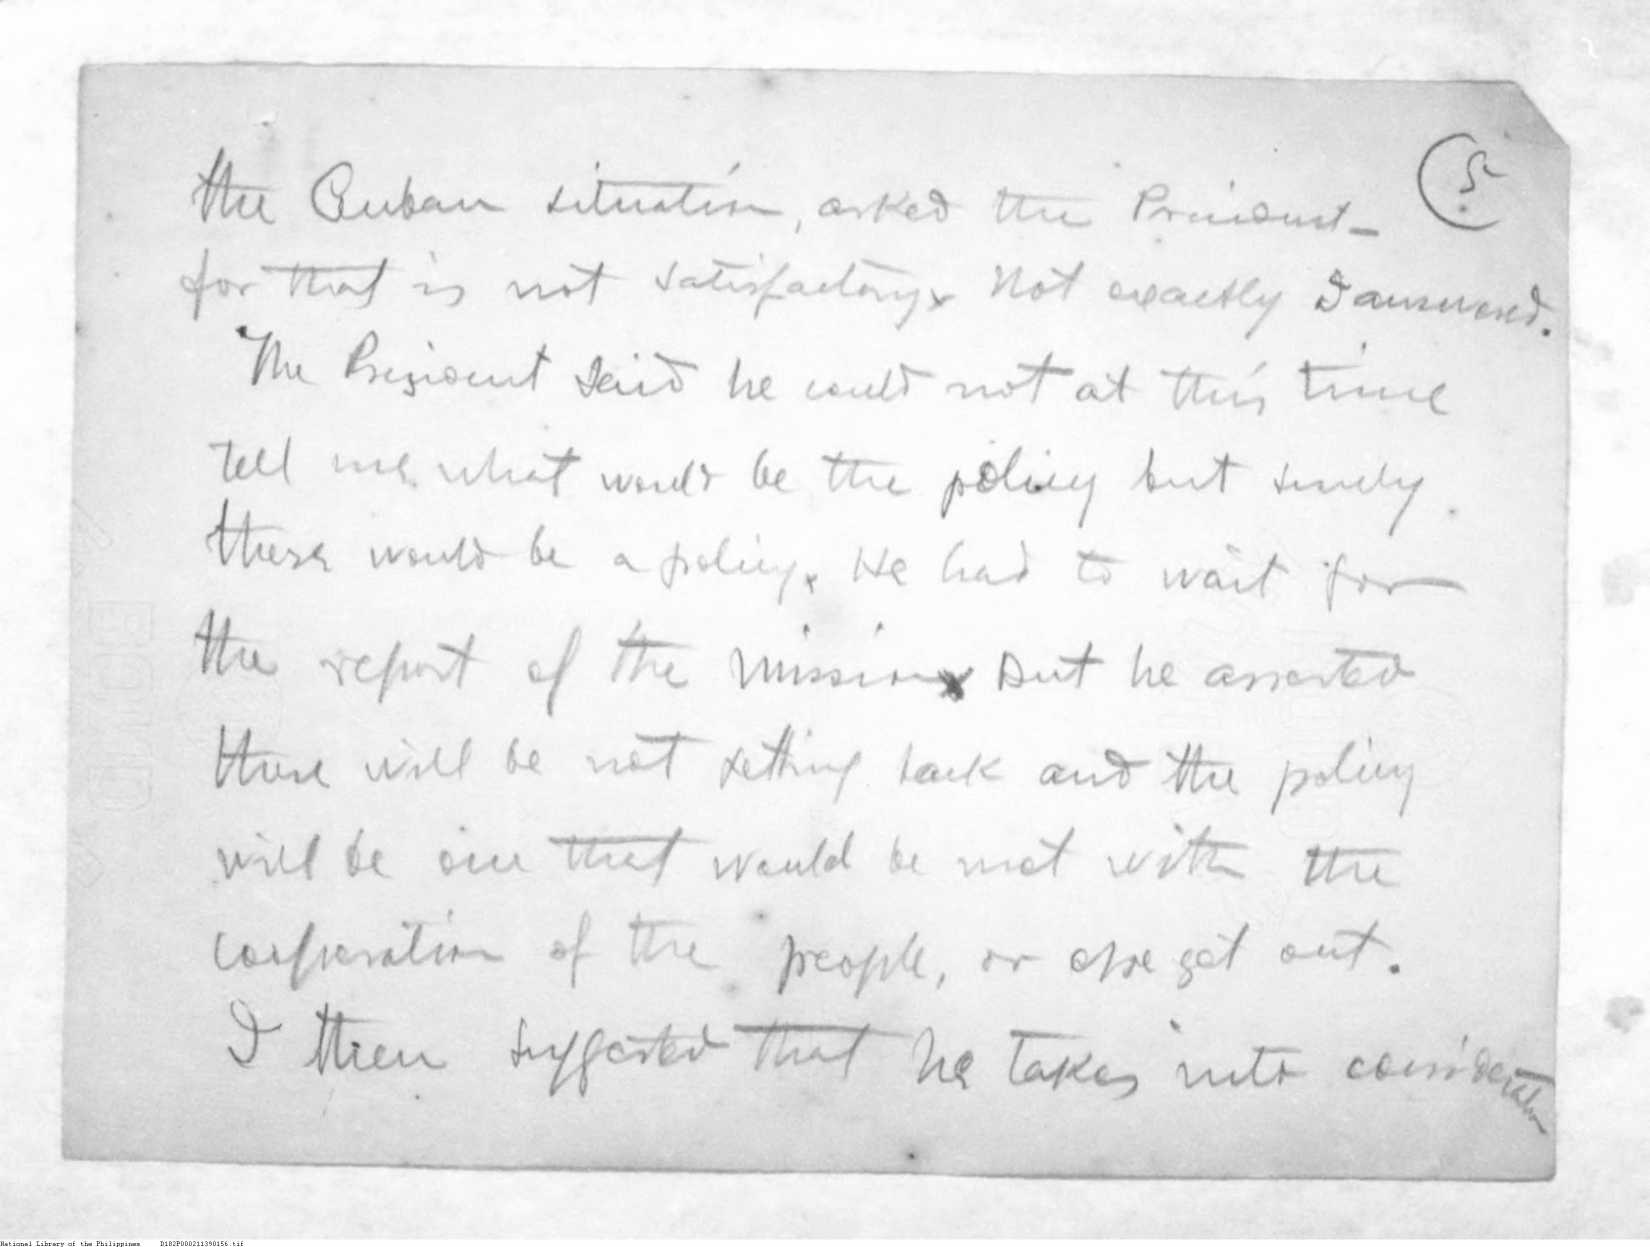 5
the Cuban situation, asked the President –
for that is not satisfactory. Not exactly I answered.
The President said he could not at this time
tell me what would be the policy but surely
there would be a policy. He had to wait for
the report of the mission. But he asserted
there will be not setting back and the policy
will be one that would be met with the
cooperation of the people, or else get out.
I then suggested that he takes into consideration
National Library of the Philippines D182P000211390156.tif